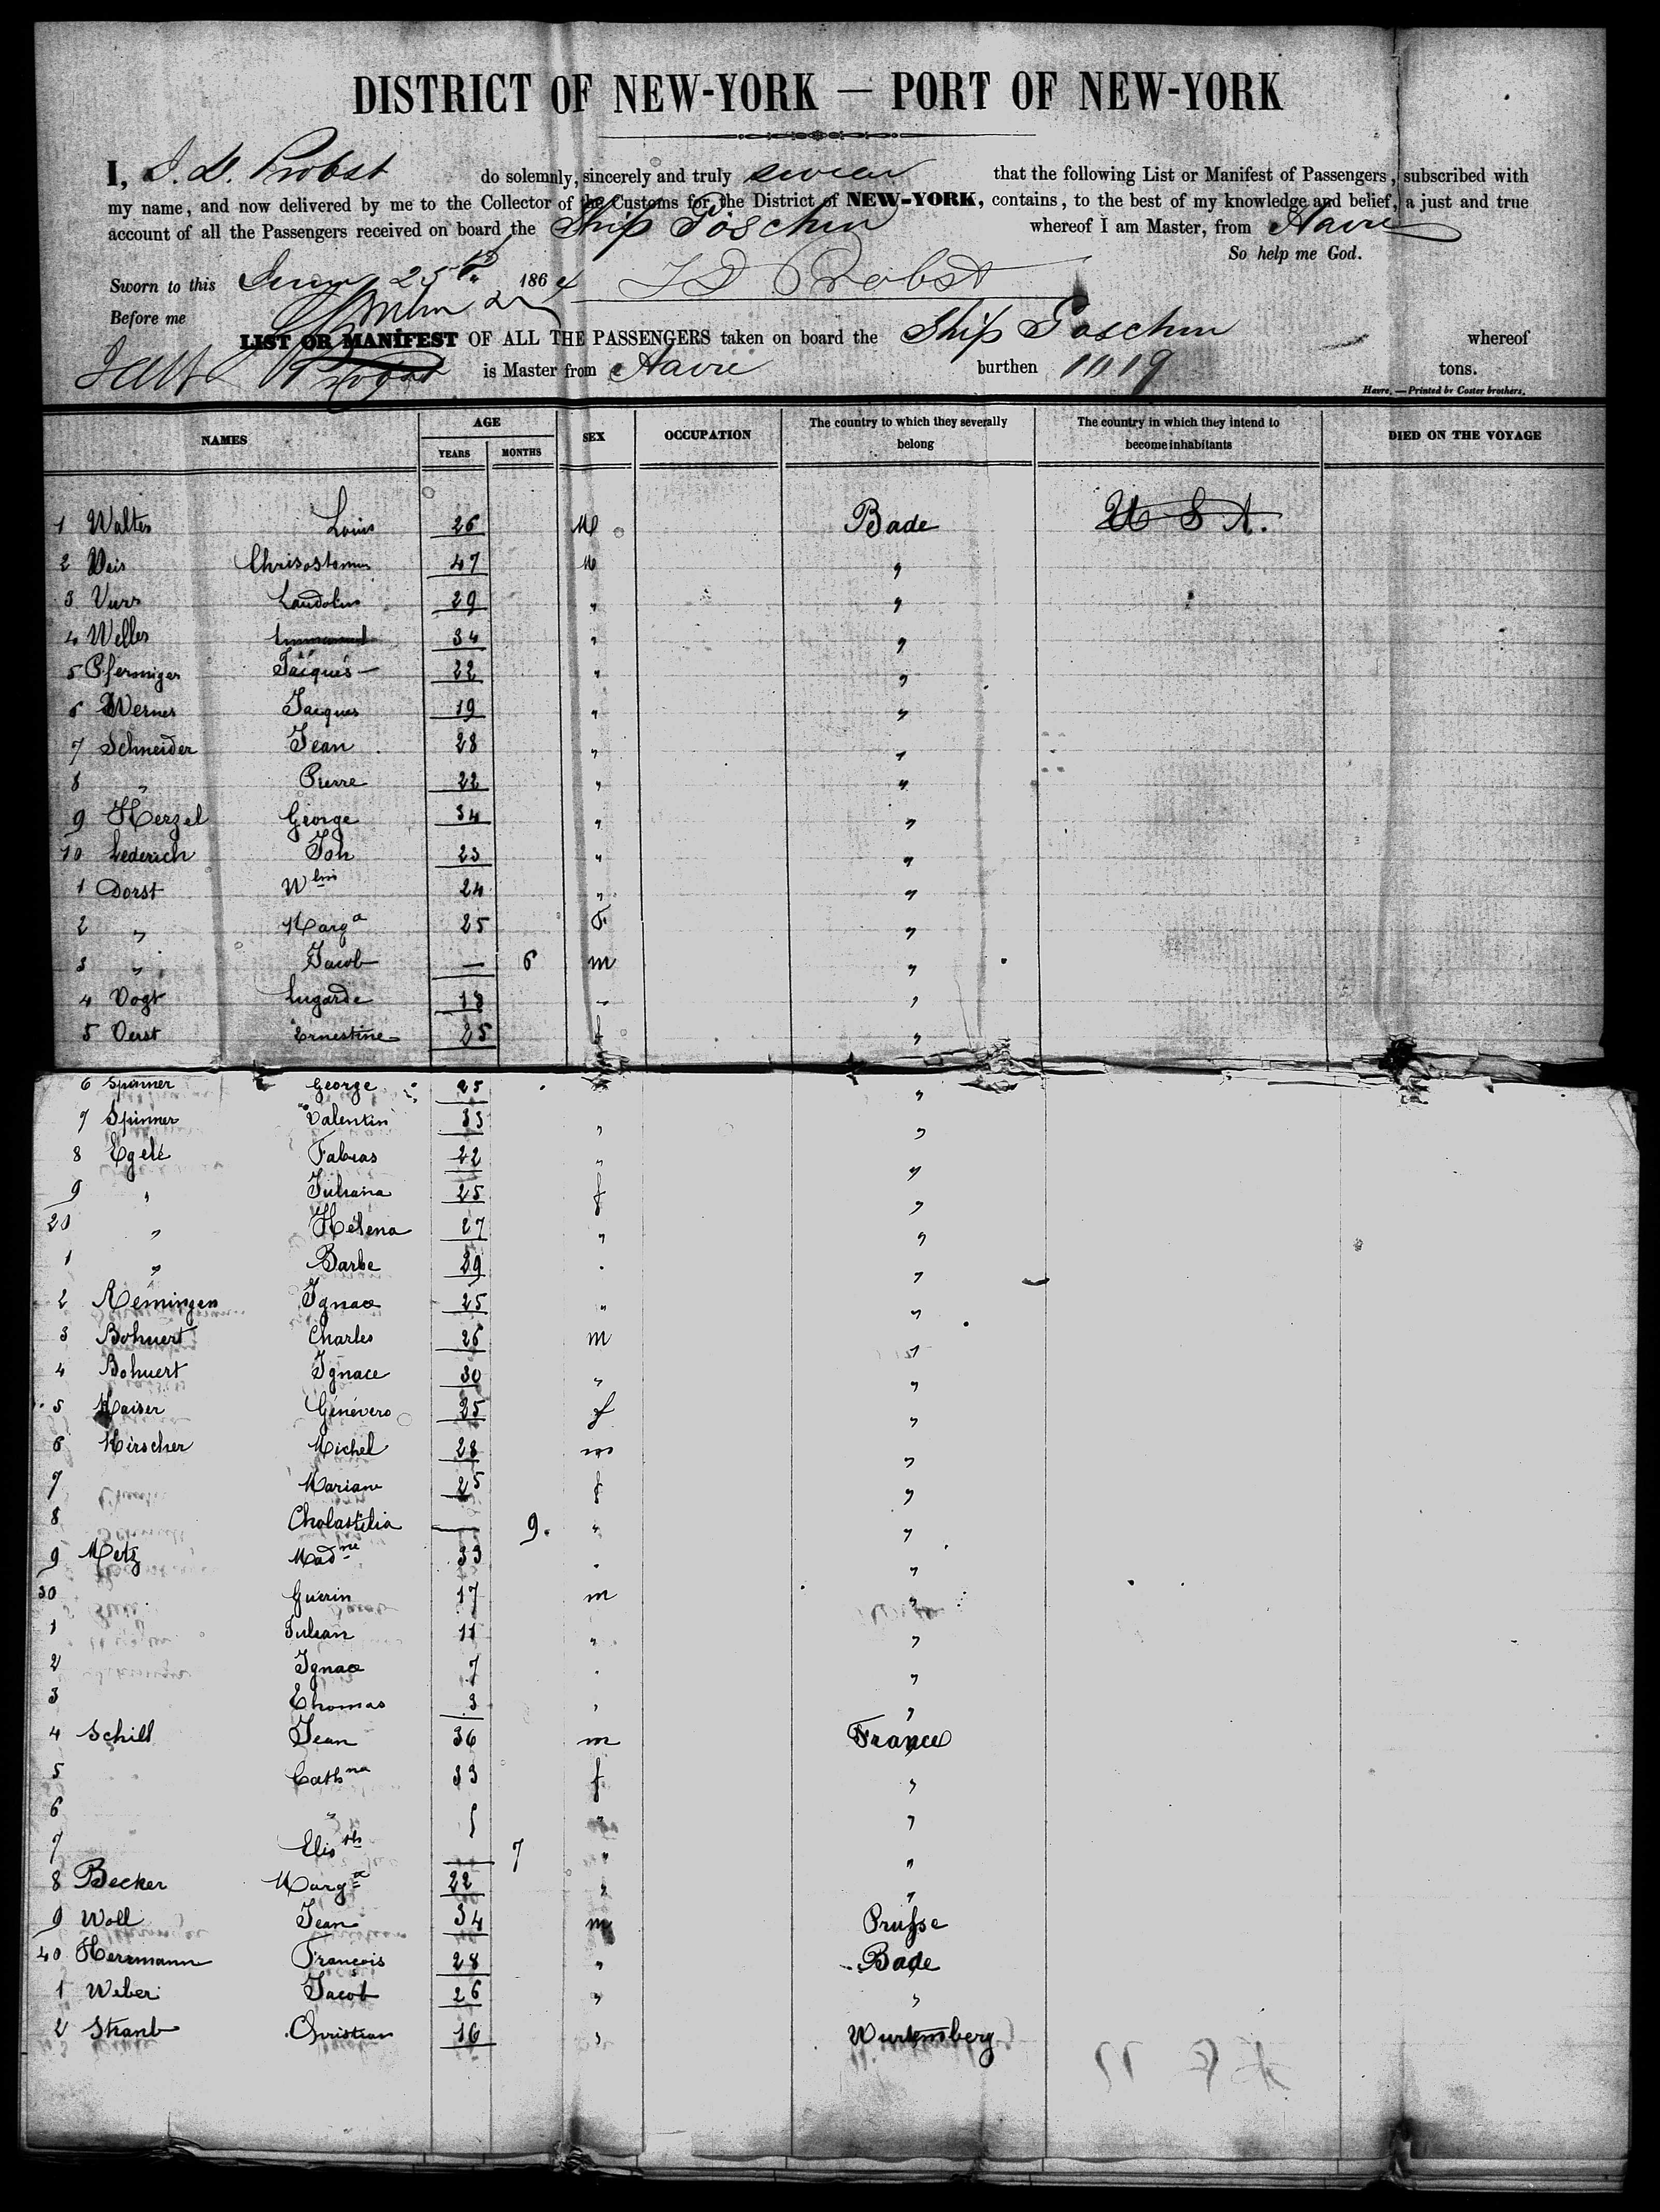 DISTRICT OF NEW-YORK — PORT OF NEW-YORK
I, J. D. Probst do solemnly, sincerely and truly swear that the following List or Manifest of Passengers, subscribed with
my name, and now delivered by me to the Collector of the Customs for the District of NEW-YORK, contains, to the best of my knowledge and belief, a just and true
account of all the Passengers received on board the Ship Goschen whereof I am Master, from Havre
So help me God.
Sworn to this June 25th 1864 J D Probst
Before me
LIST OR MANIFEST OF ALL THE PASSENGERS taken on board the Ship Goschen whereof
is Master from Havre burthen 1119 tons.
Havre. — Printed by Coster brothers.
NAMES AGE SEX OCCUPATION The country to which they severally belong The country in which they intend to become inhabitants DIED ON THE VOYAGE
YEARS MONTHS
1 Walter Louis 26 M Bade U S A.
2 Weis Chrisostomus 47 M "
3 Vurs Landolin 29 " "
4 Weller 34 " "
5 Pfenniger Jacques 22 " "
6 Werner Jacques 19 " "
7 Schneider Jean 28 " "
8 " Pierre 22 " "
9 Herzel George 34 " "
10 Lederich Joh 23 " "
1 Dorst Wlm 24 " "
2 " Marga 25 F "
3 " Jacob — 6 m "
4 Vogt Lugarde 18 - "
5 Oerst Ernestine 25 f "
6 Spinner George 25 "
7 Spinner Valentin 33 " "
8 Egelé Fabias 22 " "
9 " Juliana 25 f "
20 " Héléna 27 " "
1 " Barbe 29 " "
2 Remingen Ignace 25 " "
3 Bohnert Charles 26 m "
4 Bohnert Ignace 30 " "
5 Kaiser Génévero 25 f "
6 Kirscher Michel 28 m "
7 Mariane 25 f "
8 Cholastilia — 9. " "
9 Metz Madne 33 " "
30 Guerin 17 m "
1 Julian 11 " "
2 Ignace 7 " "
3 Thomas 3 " "
4 Schill Jean 36 m France
5 Cathna 33 f "
6 " " "
7 Elisth — 7 " "
8 Becker Marga 22 " "
9 Woll Jean 34 m Prusse
40 Herrmann François 28 " Bade
1 Weber Jacob 26 " "
2 Straub Christian 16 " Wurtemsberg